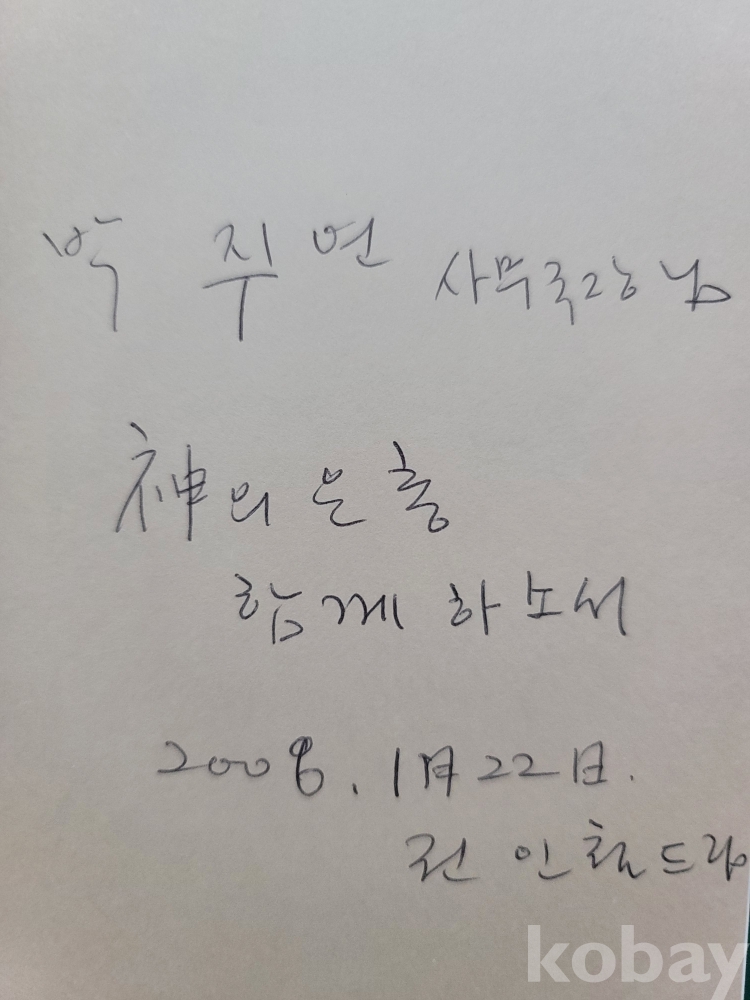 박 연 사무국장님
神의 은총
함께 하소서
1月 22日.
인철 드림
kobay